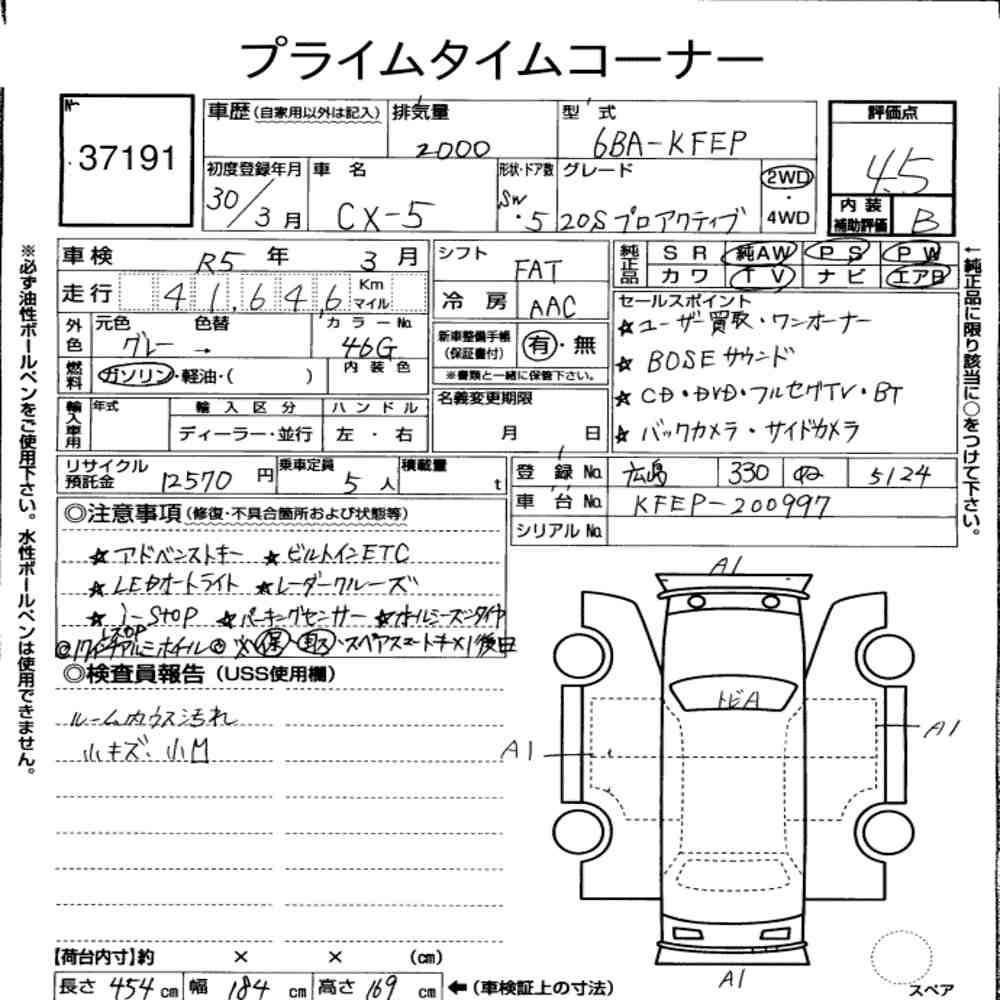 プライムタイムコーナー
No
37191
車歴 (自家用以外は記入) 排気量 2000 型式 6BA-KFEP
評価点 4.5
初度登録年月 30/3月 車名 CX-5 形状・ドア数 SW・5 グレード 20S プロアクティブ 2WD 4WD
内装補助評価 B
※必ず油性ボールペンをご使用下さい。水性ボールペンは使用できません。
車検 R5年 3月 シフト FAT
純正品 SR 純AW PS PW
カワ TV ナビ エアB
走行 41,646 Km マイル 冷房 AAC
←純正品に限り該当に○をつけて下さい。
外色 元色 グレー → 色替 カラーNo. 46G
新車整備手帳 (保証書付) 有・無
※書類と一緒に保管下さい。
燃料 ガソリン・軽油・( ) 内装色
輸入車用 年式 輸入区分 ハンドル
ディーラー・並行 左・右
名義変更期限 月 日
セールスポイント
☆ユーザー買取・ワンオーナー
☆BOSEサウンド
☆CD・DVD・フルセグTV・BT
☆バックカメラ・サイドカメラ
リサイクル預託金 12570円 乗車定員 5人 積載量 t
登録No. 広島 330 5124
車台No. KFEP-200997
シリアルNo.
◎注意事項 (修復・不具合箇所および状態等)
☆アドバンストキー ☆ビルトインETC
☆LEDオートライト ☆レーダークルーズ
☆i-STOP ☆パーキングセンサー ☆オールシーズンタイヤ
◎17インチアルミホイール◎ ※保・取・スペアスマートキー×1後日
◎検査員報告 (USS使用欄)
ルーム内ウス汚れ
小キズ、小凹
A1
トビA
A1
A1
A1
スペア
【荷台内寸】約 × × (cm)
長さ 454cm 幅 184cm 高さ 169cm ←(車検証上の寸法)